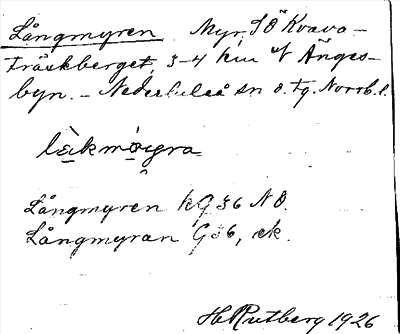 Långmyren Myr, SÖ Kvavo-
träskberget, 3-4 km af Änges-
byn. - Nederluleå sn o. tg. Norrb. l.
Långmyren kG 36 NO.
Långmyran G36, ek.
H Rutberg 1926